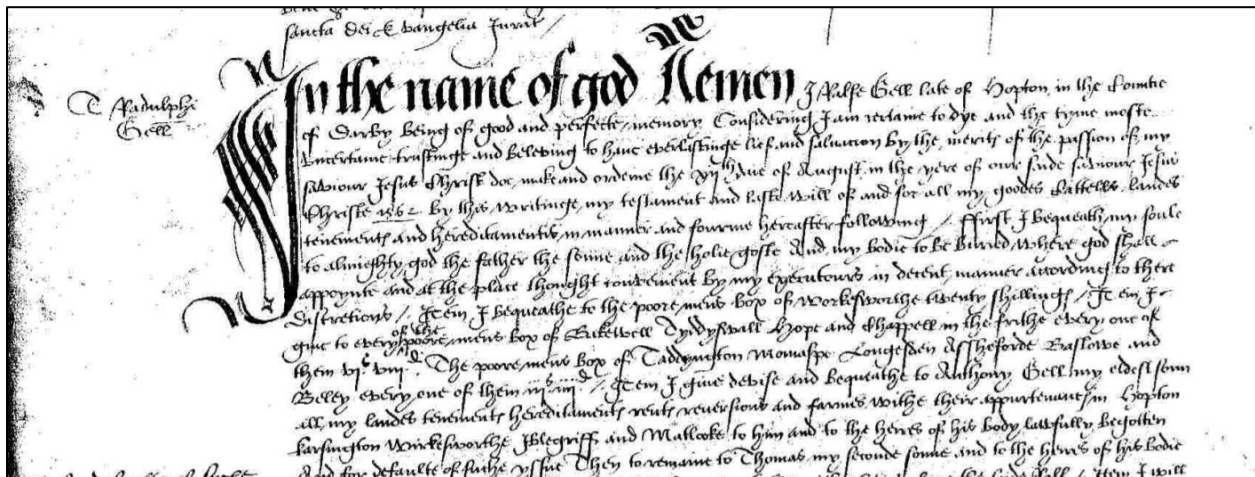 sancta dei Evangelia Jurat
T Radulphi
Gell
In the name of god Aemen I Ralfe Gell late of Hopton in the Countie
of Darby being of good and perfecte memory Considering I am certaine to dye and the tyme moste
uncertaine trustinge and beleving to have everlastinge lief and salvation by the merits of the passion of my
saviour Jesus Christ doe make and ordeine the daie of August in the yere of our saviour Jesus
Christe by this writinge my testament and laste will of and for all my goodes Cattells landes
tenements and hereditaments in manner and fourme hereafter following / ffirst I bequeath my soule
to almighty god the father the sonne and the holie goste And my bodie to be buried where god shall
appoynte and at the place thought convenient by my executours in decent manner according to there
discretions / Item I bequeathe to the poore mens box of workesworthe twenty shillings / Item I
give to every of the poore mens box of Bakewell Tyddyswall Hope and Chappell in the frithe every one of
them vjs viijd. The poore mens box of Taddyngton Monyashe Longesden Assheforde Baslowe and
Beley every one of them iijs iiijd / Item I give devise and bequeathe to Anthony Gell my eldest sonn
all my landes tenements hereditaments rents reversions and farmes withe their appurtenances in Hopton
karsington Wirkesworthe Iblegriff and Matlocke to him and to the heires of his body lawfully begotten
And for defaulte of suche yssue Then to remaine to Thomas my seconde sonne and to the heires of his bodie
Item I will